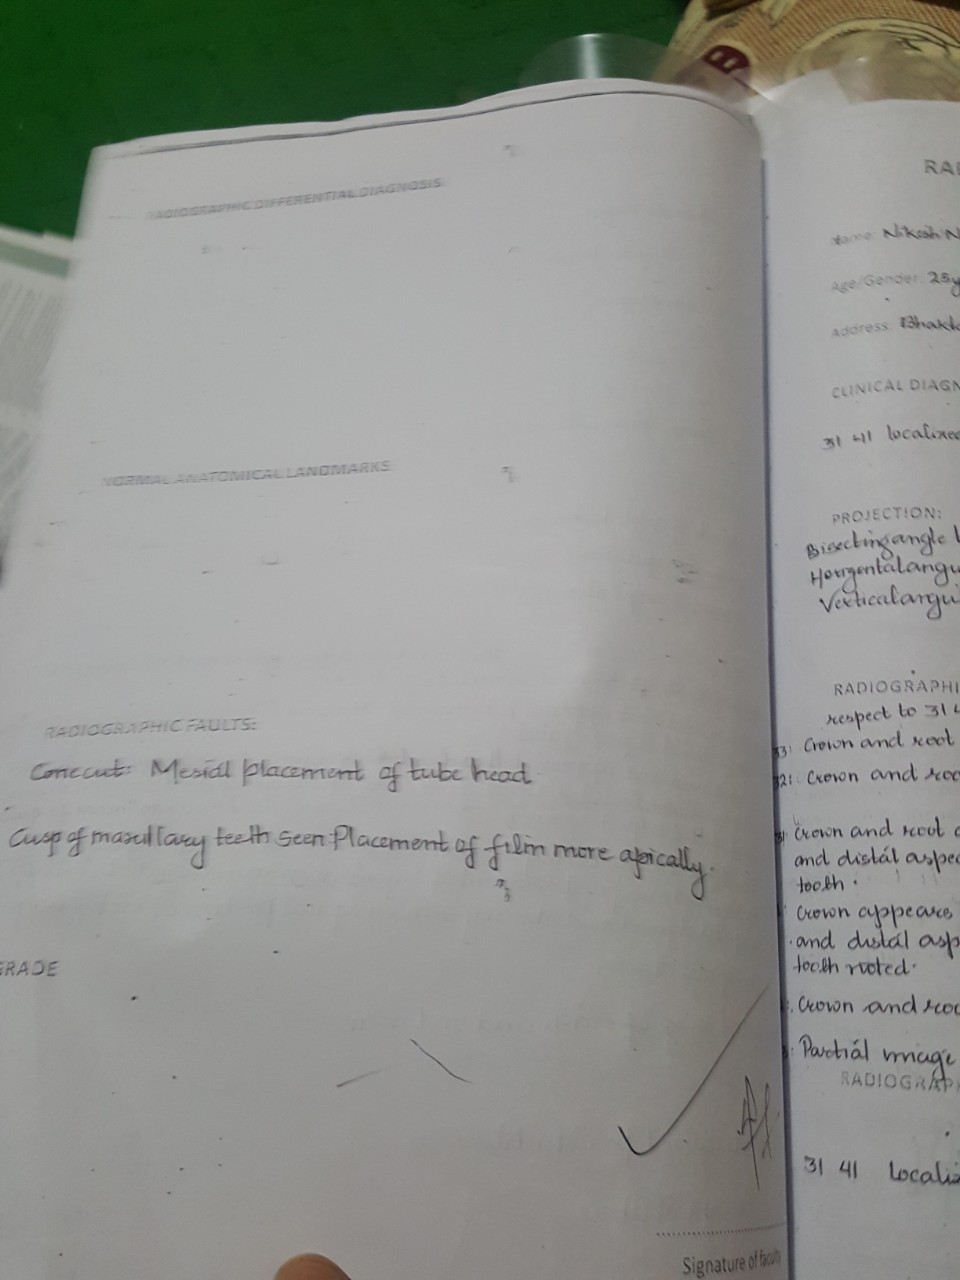 RADIOGRAPHIC DIFFERENTIAL DIAGNOSIS:
NORMAL ANATOMICAL LANDMARKS
RADIOGRAPHIC FAULTS:
Conecut: Mesial placement of tube head
Cusp of maxillary teeth seen Placement of film more apically.
GRADE
Signature of facult
RA
Name: Nikesh N
Age/Gender: 25y
Address: Bhakt
CLINICAL DIAGN
31 41 localized
PROJECTION:
Bisecting angle
Horizental angu
Vertical angu
RADIOGRAPHI
respect to 31 4
33: Crown and root
32: Crown and roo
31 Crown and root
and distal aspec
tooth.
Crown appears
and distal asp
tooth noted.
Crown and roo
Partial image
RADIOGRAPH
31 41 Localiz